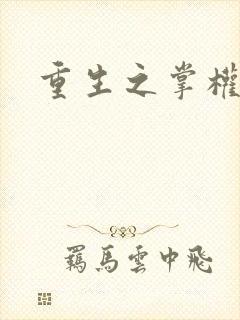 重生之掌權
羈馬雲中飛